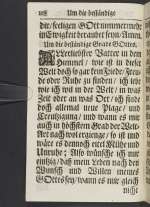 118 Um die beständige
dir/seeligen GOtt nimmermehr
in Ewigkeit beraubet seyn/Amen.
Um die beständige Gnade GOttes.
Allerliebster Vatter in dem
Himmel / wie ist in dieser
Welt doch so gar kein Friede/Freude
oder Ruhe zu finden! ich lebe
wie ich wil in der Welt/ an was
Zeit oder an was Ort / ich finde
doch allemal neue Plage / und
Creutzigung / und wann es mir
auch in höchstem Grad der Welt-
Art nach wol ergienge / so ist und
wäre es dennoch eitel Mühe und
Unruhe; Also wünsche ich mir
einzig/ daß mein Leben nach dem
Wunsch und Willen meines
GOttes sey/ wann es mir gleich
nicht